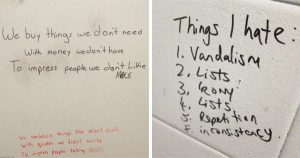 We buy things we don't need
With money we don't have
To impress people we don't Like
We vandalise things that aren't ours
with quotes we didn't write
To impress people taking
Things I hate:
1. Vandalism
2. Lists
3. Irony
4. Lists
5. Repetition
F. inconsistency